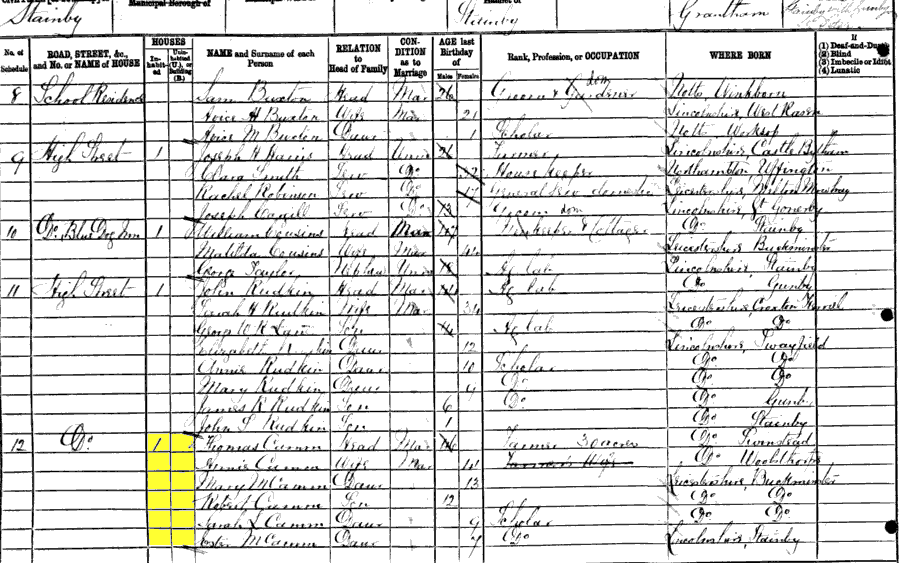 Stainby Municipal Borough of Stainby Grantham
No. of Schedule ROAD, STREET, &c., and No. or NAME of HOUSE HOUSES Inhabited Uninhabited (U.), or Building (B.) NAME and Surname of each Person RELATION to Head of Family CONDITION as to Marriage AGE last Birthday of Males Females Rank, Profession, or OCCUPATION WHERE BORN If (1) Deaf-and-Dumb (2) Blind (3) Imbecile or Idiot (4) Lunatic
8 School Residence Sam Buxton Head Mar 26 Groom & Gardener dom Notts,
Alice H Buxton Wife Mar 21 Lincolnshire, West Rasen
Alice M Buxton Daur 1 Scholar Notts Worksop
9 High Street 1 Joseph H Harris Head Unm 26 Farmer Lincolnshire, Castle Bytham
Clara Smith Serv Do House Keeper Northampton Uffington
Rachel Robinson Serv Do 17 General Serv domestic Leicestershire, Melton Mowbray
Joseph Serv Do 13 Groom dom Lincolnshire, Gt Gonerby
10 Do, Blue Dog Inn 1 William Cousins Head Mar & Cottager Do Stainby
Matilda Cousins Wife Mar Leicestershire Buckminster
George Taylor Nephew Unm Ag Lab Lincolnshire, Stainby
11 High Street 1 John Rudkin Head Mar Ag Lab Do Gunby
Sarah H Rudkin Wife Mar 34 Leicestershire, Croxton Kerrial
George W R Son Ag Lab Do Do
Elizabeth Rudkin Daur 12 Lincolnshire, Swayfield
Annie Rudkin Daur 10 Scholar Do Do
Mary Rudkin Daur 9 Do Do Do
James R Rudkin Son 6 Do Do Gunby
John S Rudkin Son 1 Do Stainby
12 Do 1 Thomas Camm Head Mar 46 Farmer 30 acres Do
Annie Camm Wife Mar 41 Farmer's Wife Do Woolsthorpe
Mary M Camm Daur 13 Leicestershire, Buckminster
Robert Camm Son 12 Do Do
Sarah L Camm Daur 9 Scholar Do Do
M Camm Daur 7 Do Lincolnshire, Stainby